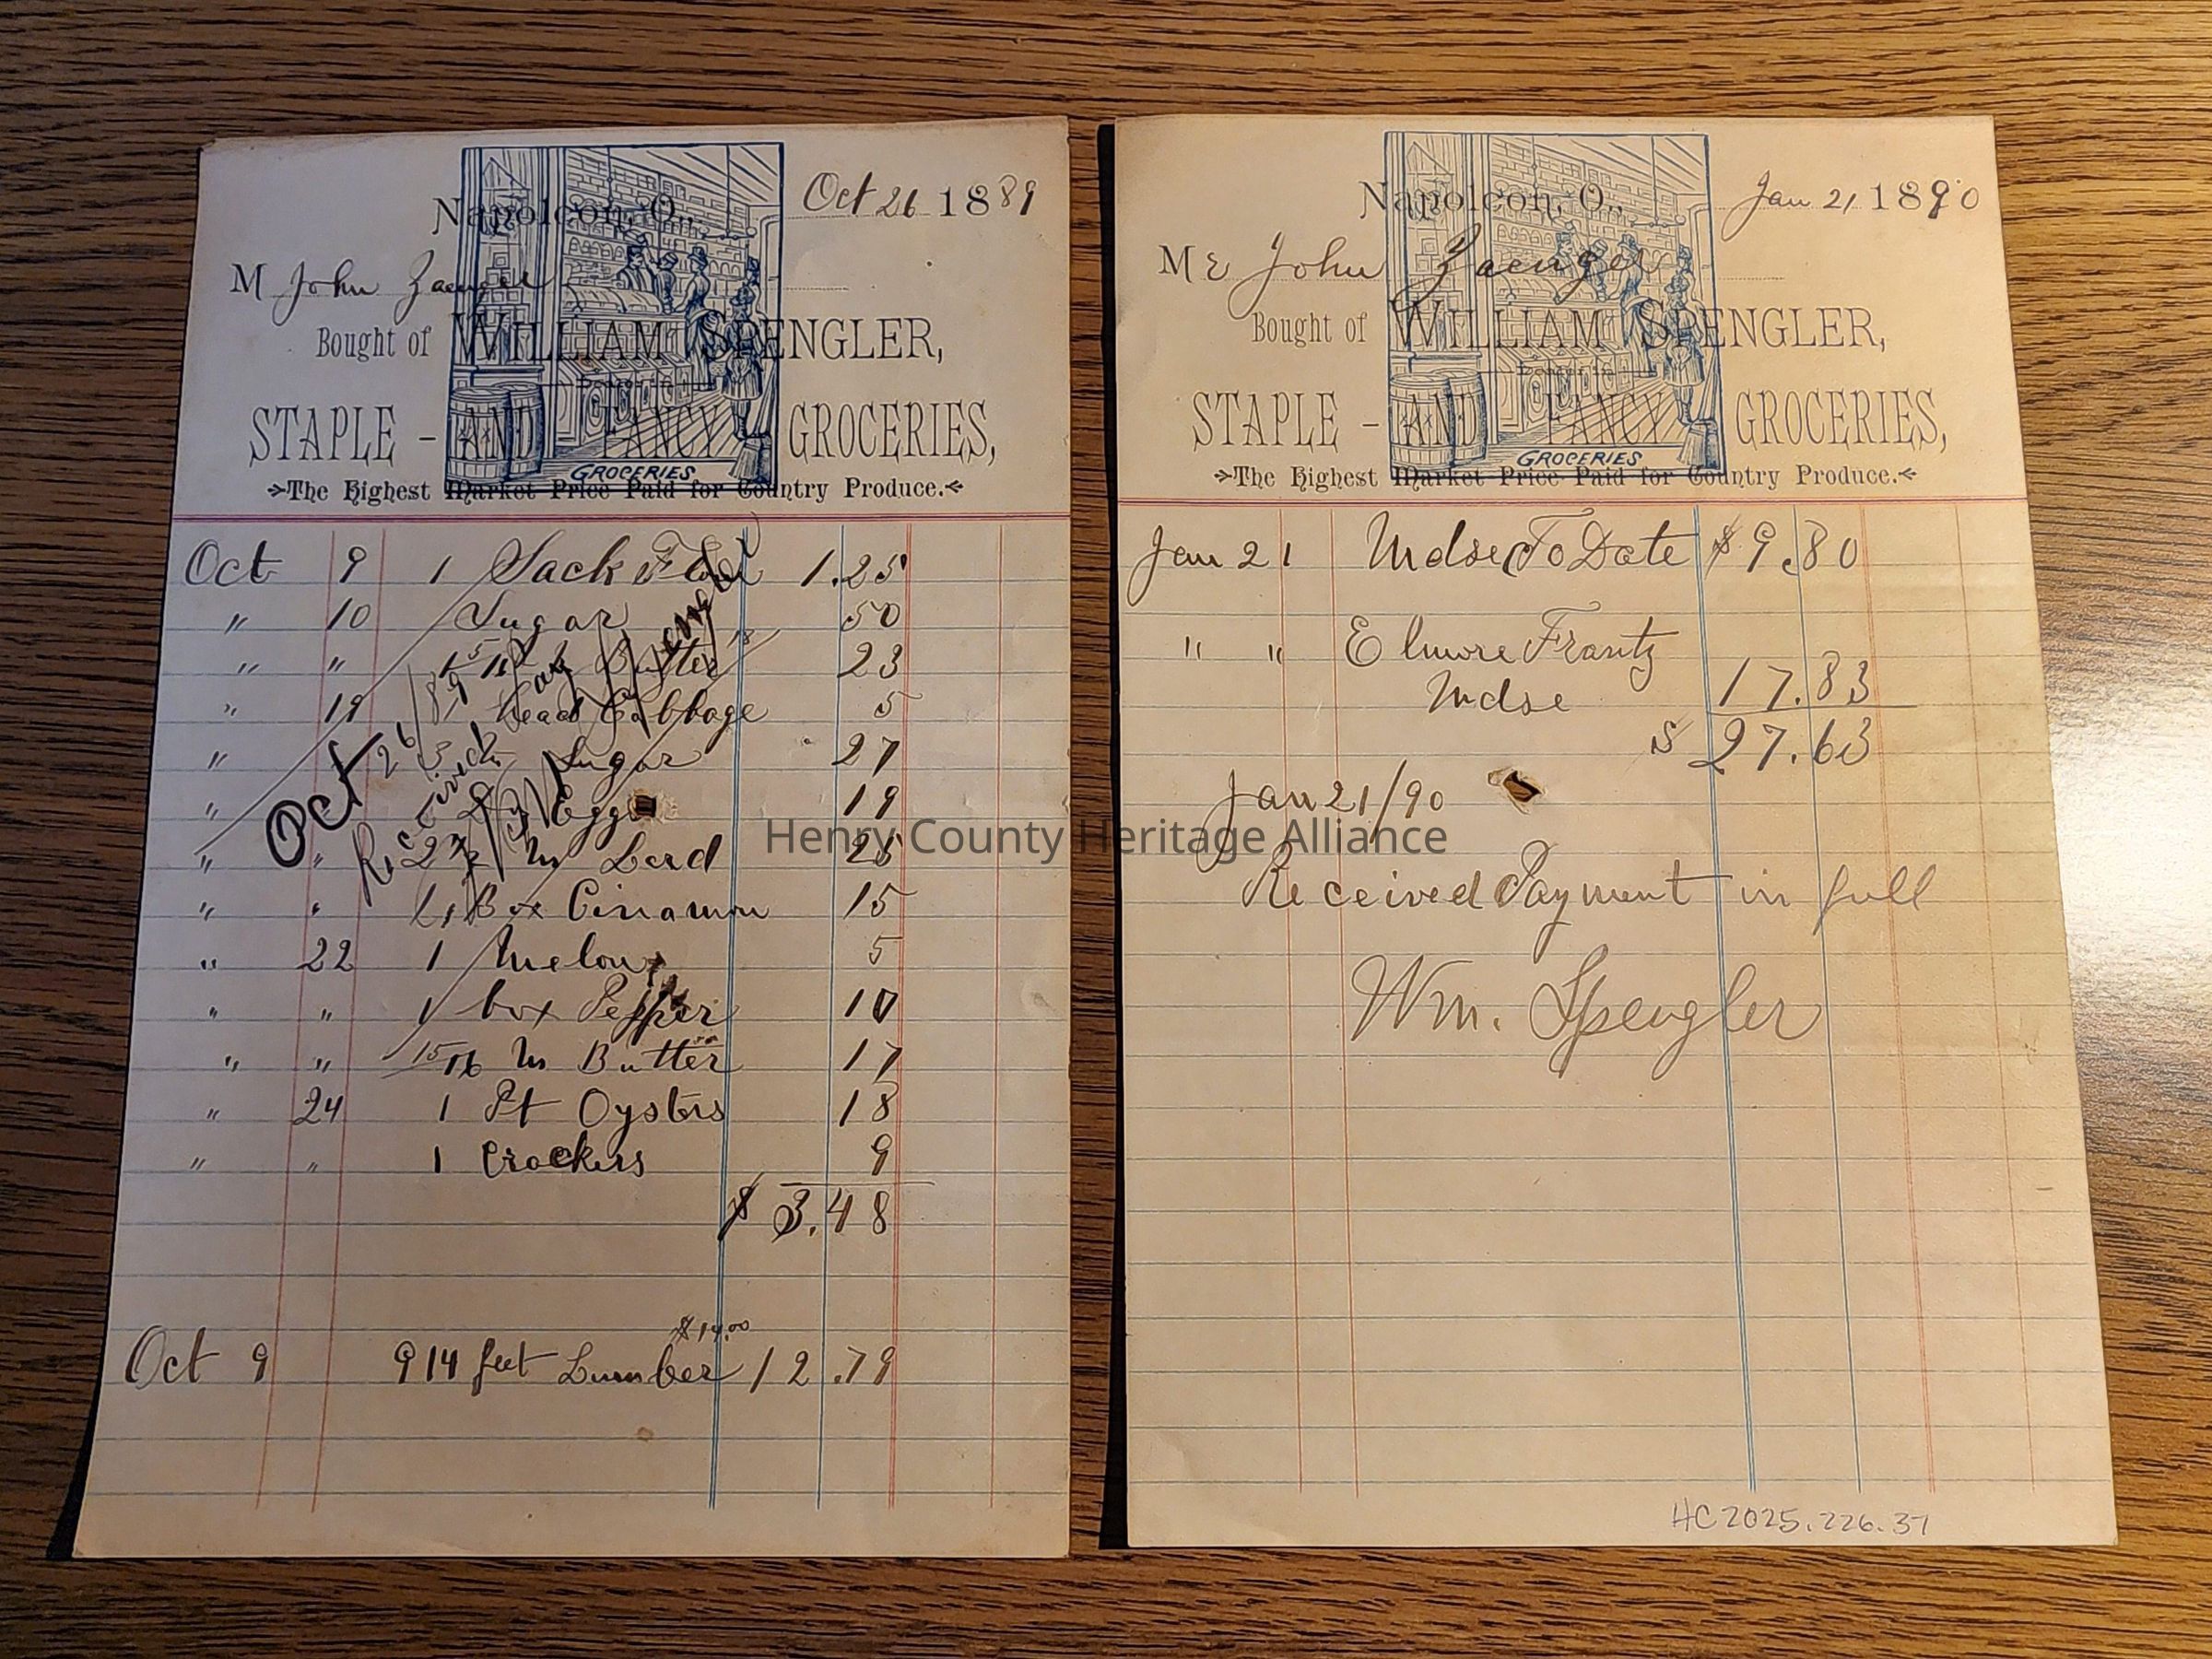 Napoleon, O., Oct 26 1889
M John Zaenger
Bought of WILLIAM SPENGLER,
Dealer in
STAPLE - AND FANCY GROCERIES,
GROCERIES
The Highest Market Price Paid for Country Produce.
Oct 9 1 Sack Flour 1.25
" 10 Sugar 50
" " Butter 23
" 19 head Cabbage 5
" Sugar 27
" Eggs 19
" " 2 1/2 lbs Lard 25
" " 1 Box Cinamon 15
" 22 1 Melon 5
" " 1 box Pepper 10
" " 15/16 lbs Butter 17
" 24 1 Pt Oysters 18
" " 1 Crackers 9
$ 3.48
Oct 26/89
Received Pay
$14.00
Oct 9 914 feet Lumber 12.79
Napoleon, O., Jan 21, 1890
Mr John Zaenger
Bought of WILLIAM SPENGLER,
Dealer in
STAPLE - AND FANCY GROCERIES,
GROCERIES
The Highest Market Price Paid for Country Produce.
Jan 21 Mdse To Date $ 9.80
" " Elmore Frantz
Mdse 17.83
$ 27.63
Jan 21/90
Received Payment in full
Wm. Spengler
HC2025.226.37
Henry County Heritage Alliance